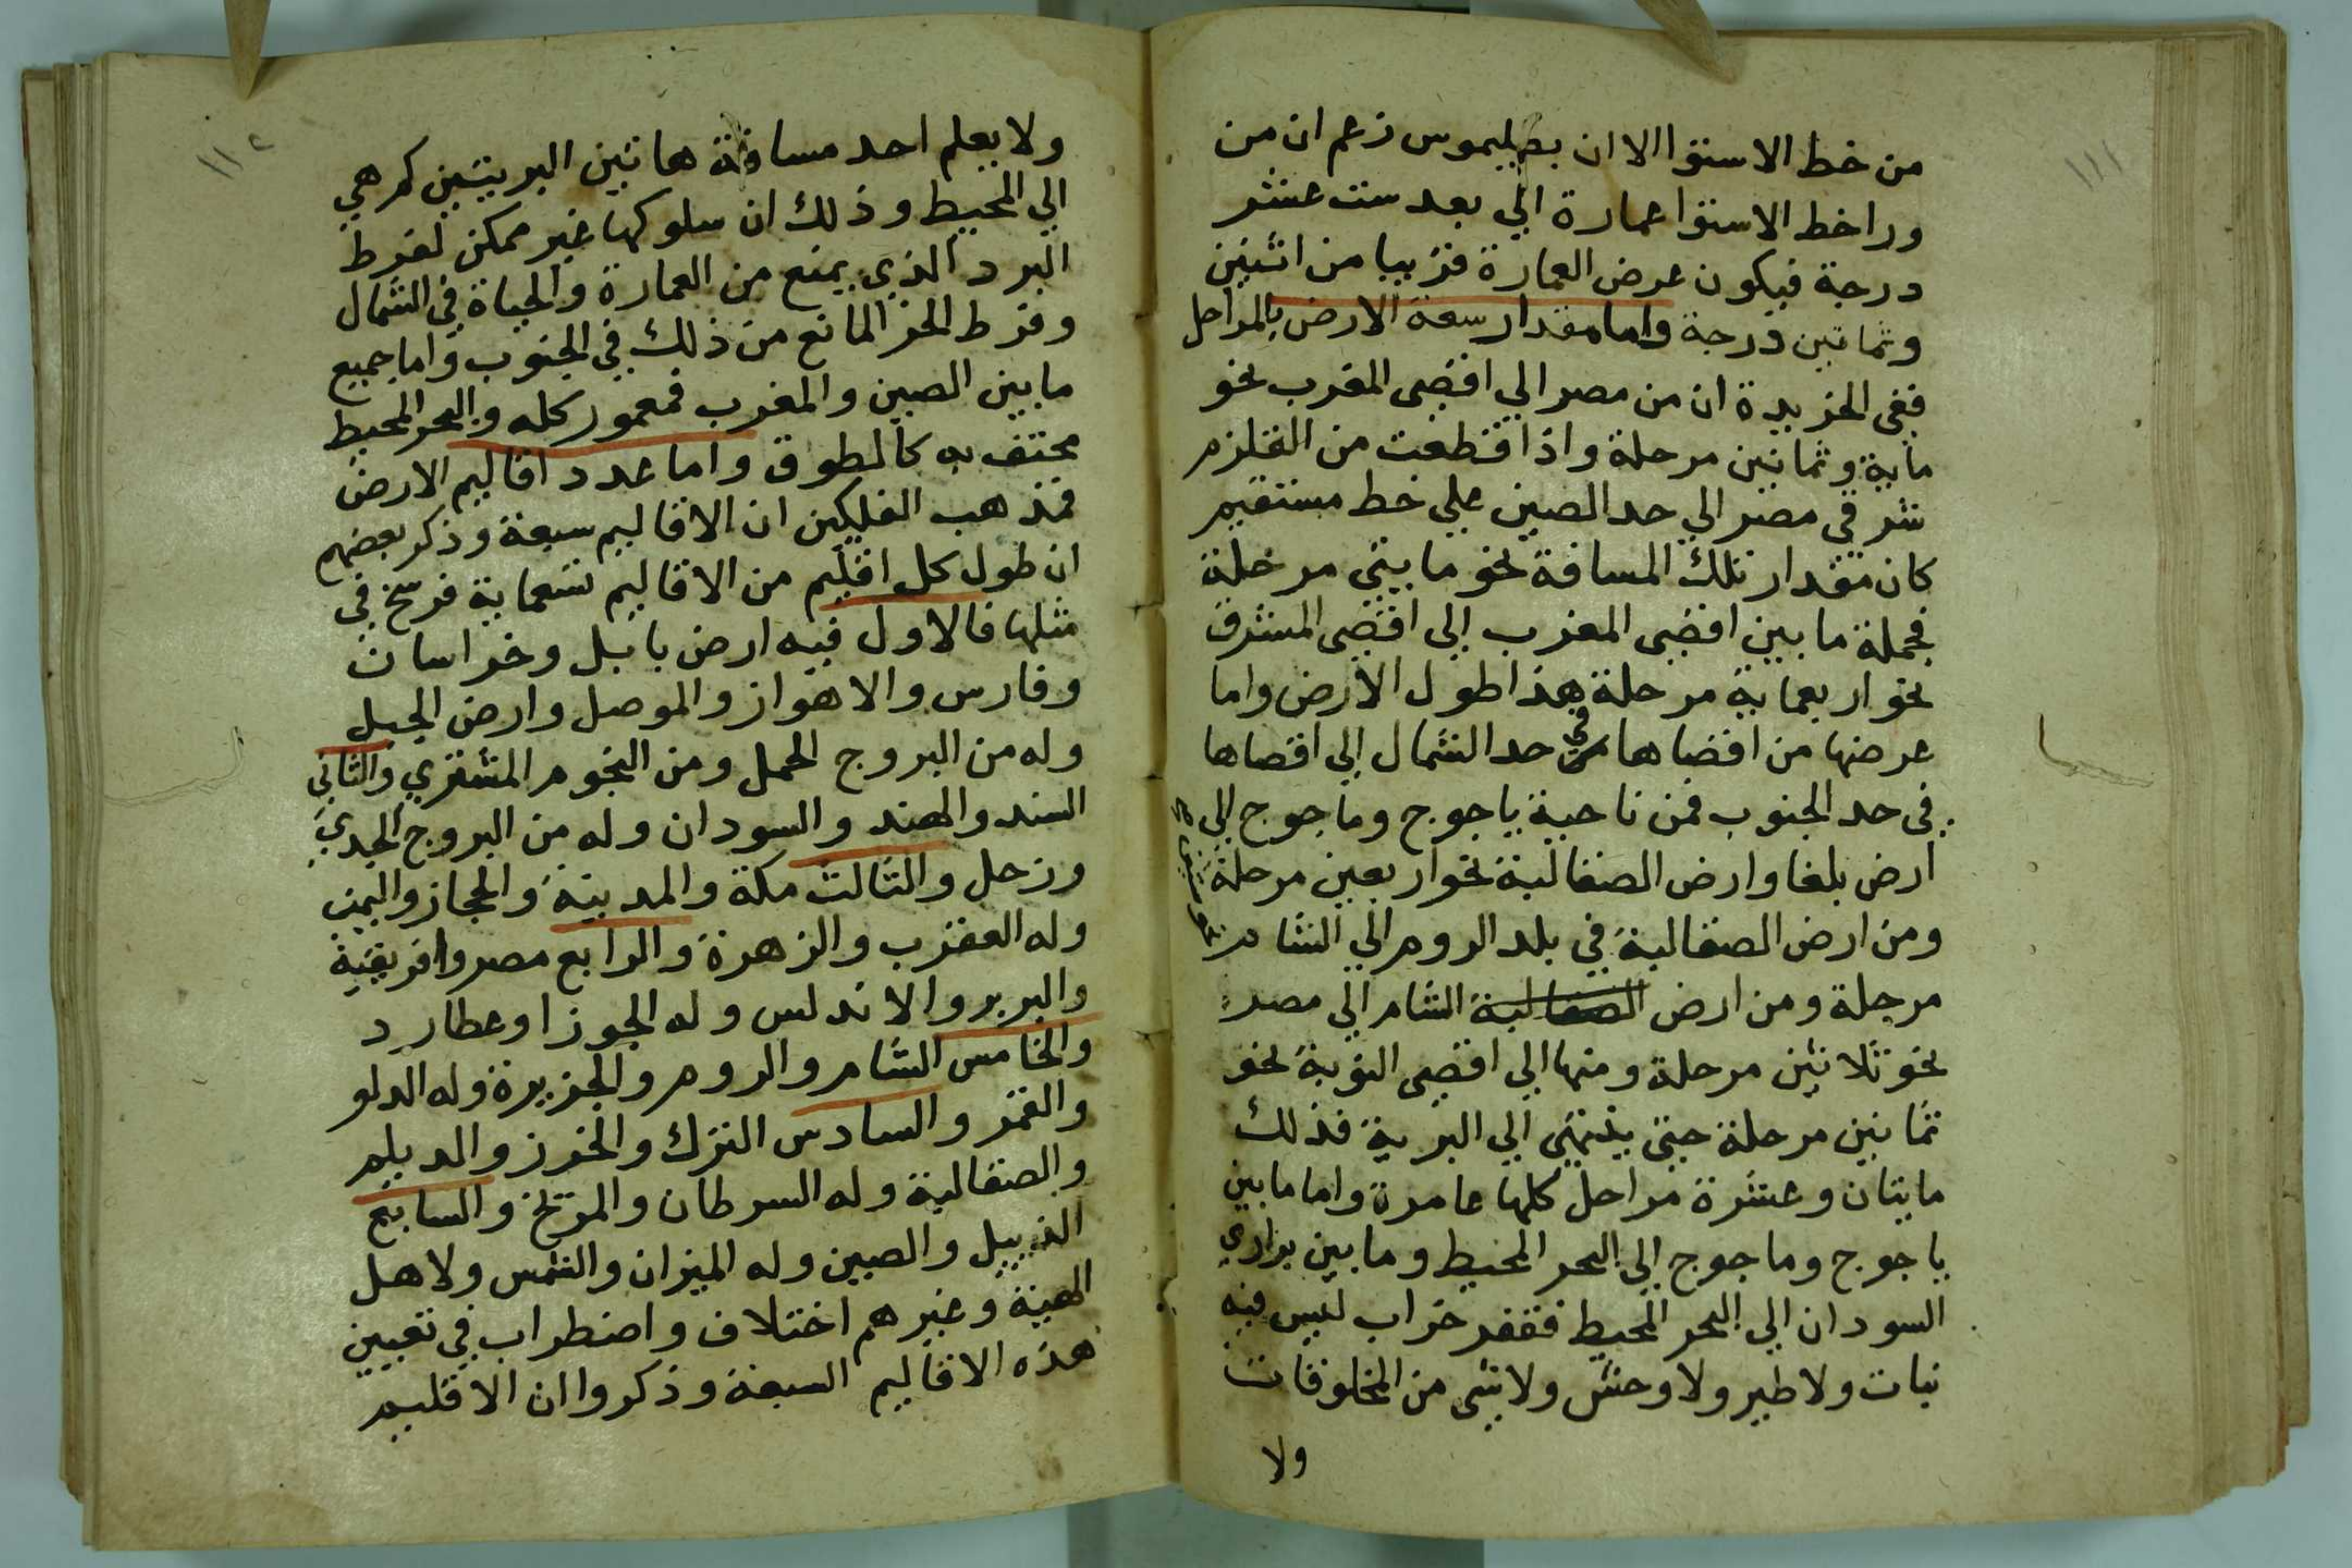 ١١١
من خط الاستوا الا ان بطليموس زعم ان من
ورا خط الاستوا عمارة الي بعد ست عشر
درجة فيكون عرض العمارة قريبا من اثنين
وثمانين درجة واما مقدار سعة الارض بالمراحل
ففي الخريدة ان من مصر الي اقصى المغرب نحو
ماية وثمانين مرحلة واذا قطعت من القلزم
شرقي مصر الي حد الصين علي خط مستقيم
كان مقدار تلك المسافة نحو مايتي مرحلة
فجملة ما بين اقصى المغرب الي اقصى المشرق
نحو اربعماية مرحلة هذا طول الارض واما
عرضها من اقصاها في حد الشمال الي اقصاها
في حد الجنوب فمن ناحية ياجوج وماجوج الي
ارض بلغا وارض الصقالبة نحو اربعين مرحلة
ومن ارض الصقالبة في بلد الروم الي الشام
مرحلة ومن ارض الصقالبة الشام الي مصر
نحو ثلاثين مرحلة ومنها الي اقصى النوبة نحو
ثمانين مرحلة حتى ينتهي الي البرية فذلك
مايتان وعشرة مراحل كلها عامرة واما ما بين
ياجوج وماجوج الي البحر المحيط وما بين براري
السودان الي البحر المحيط فقفر خراب ليس فيه
نبات ولا طير ولا وحش ولا شى من المخلوقات
ولا
١١٢
ولا يعلم احد مسافة هاتين البريتين كم هي
الي المحيط وذلك ان سلوكها غير ممكن لفرط
البرد الذي يمنع من العمارة والحياة في الشمال
وفرط الحر المانع من ذلك في الجنوب واما جميع
ما بين الصين والمغرب فمعمور كله والبحر المحيط
محتف به كالطوق واما عدد اقاليم الارض
فمذهب الفلكيين ان الاقاليم سبعة وذكر بعضهم
ان طول كل اقليم من الاقاليم تسعماية فرسخ في
مثلها فالاول فيه ارض بابل وخراسان
وفارس والاهواز والموصل وارض الجبل
وله من البروج الحمل ومن النجوم المشتري والثاني
السند والهند والسودان وله من البروج الجدي
وزحل والثالث مكة والمدينة والحجاز واليمن
وله العقرب والزهرة والرابع مصر وافريقية
والبربر والاندلس وله الجوزا وعطارد
والخامس الشام والروم والجزيرة وله الدلو
والقمر والسادس الترك والخزر والديلم
والصقالبة وله السرطان والمريخ والسابع
الدبيل والصين وله الميزان والشمس ولاهل
الهيئة وغيرهم اختلاف واضطراب في تعيين
هذه الاقاليم السبعة وذكروا ان الاقليم